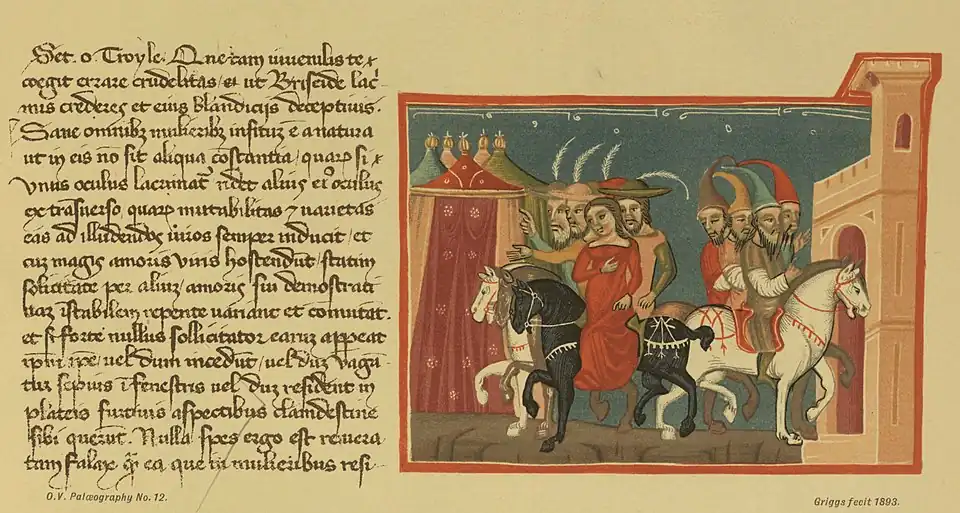 Set. o. Troyle. Que tam iuvenilis te
coegit errare crudelitas, et ut Briseide lac'
mis crederes et eius blandicijs deceptivis.
Sane omnibz mulieribz insitum ē a natura
ut in eis nō sit aliqua cōstantia, quarum si
unius oculus lacrimat' ridet alius ei' oculus
ex trāsverso, quarum mutabilitas et varietas
eas ad illudendos viros semper inducit, et
cuz magis amoris viris hostendūt, statim
solicitate per aliuz, amoris sui demonstrati
instabilem repente variant et comutāt.
et si forte nullus sollicitator earum appeat
ipm ipe, vel dum incedūt, vel duz vagā
tur sepius ī fenestris vel duz resident in
plateis furtivis aspectibus clandestine
sibi querūt. Nulla spes ergo est revera
tam falax quam ea que in mulieribus resi-
O.V. Palæography No. 12.
Griggs fecit 1893.